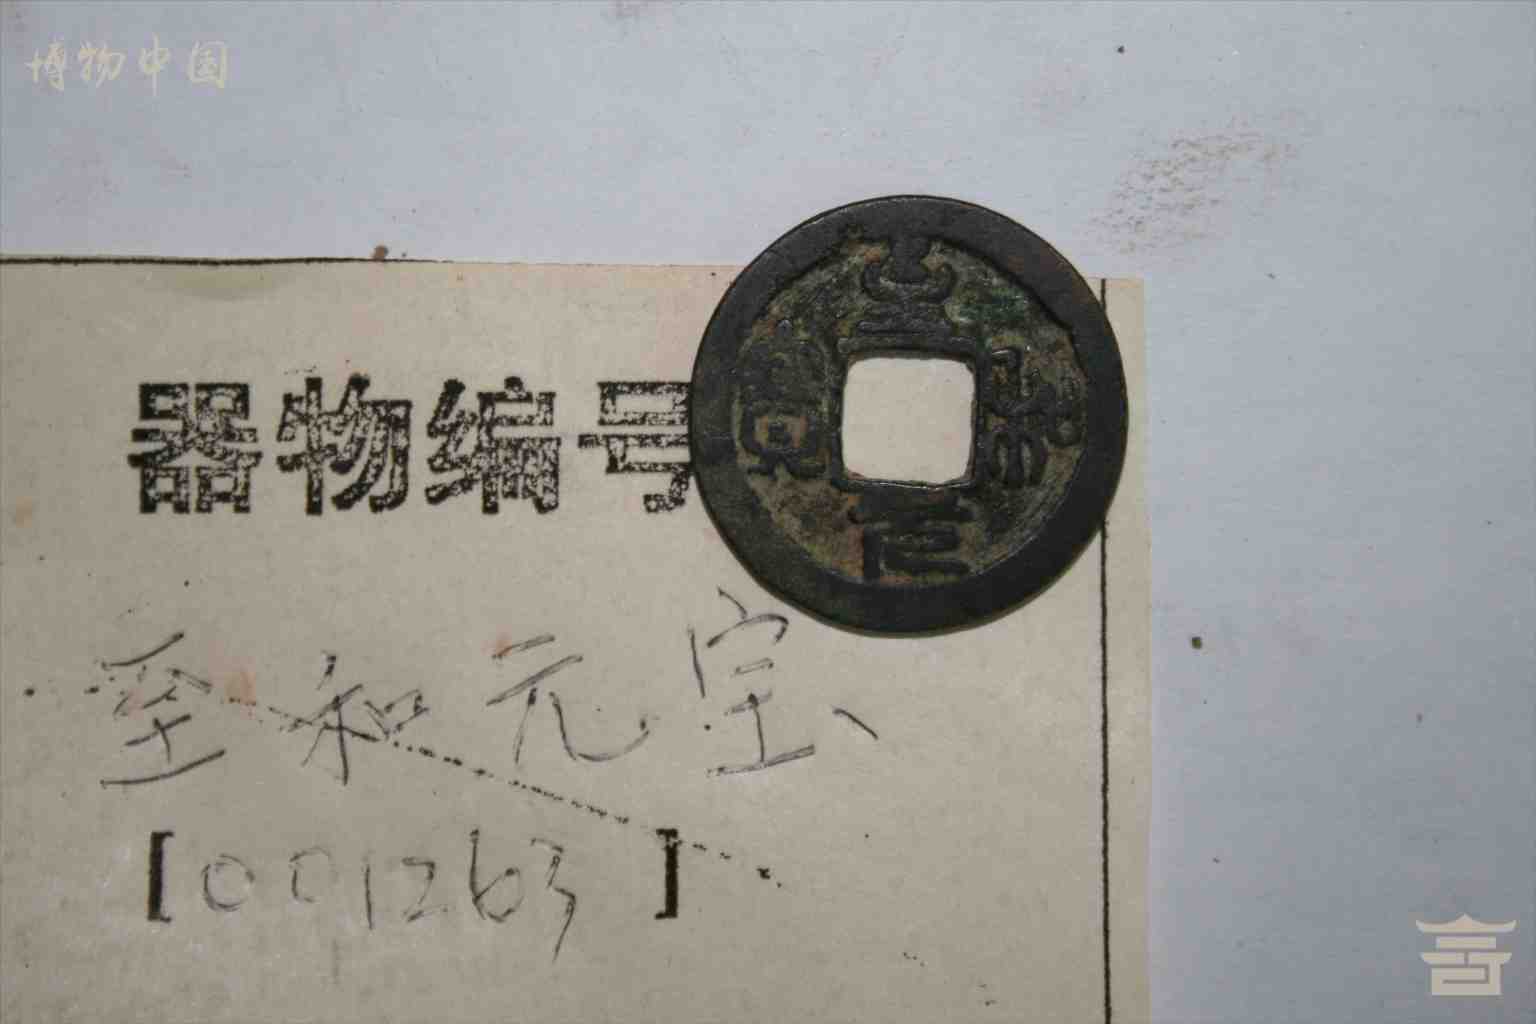 博物中国
至和元宝
器物编号
至和元宝
[001263]